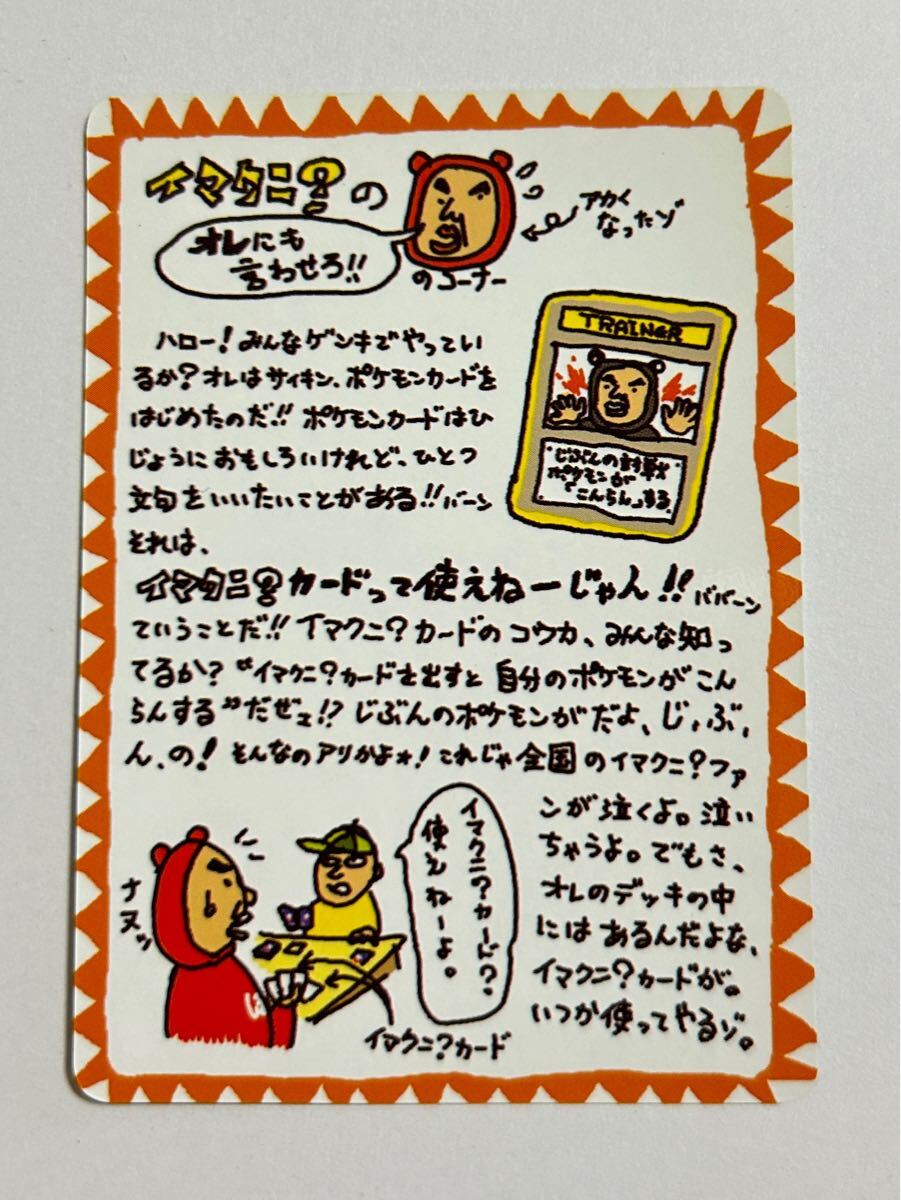 イマクニ?の
オレにも
言わせろ!!
のコーナー
アカく
なったゾ
TRAINER
じぶんの対戦
ポケモンが
「こんらん」する
ハロー!みんなゲンキでやってい
るか?オレはサイキン、ポケモンカードを
はじめたのだ!!ポケモンカードはひ
じょうにおもしろいけれど、ひとつ
文句をいいたいことがある!!バーン
それは、
イマクニ?カードって使えねーじゃん!!ババーン
ていうことだ!!イマクニ?カードのコウカ、みんな知っ
てるか?“イマクニ?カードを出すと自分のポケモンがこん
らんする”だぜェ!?じぶんのポケモンがだよ、じ、ぶ、
ん、の!そんなのアリかよォ!これじゃ全国のイマクニ?ファ
ンが泣くよ。泣い
ちゃうよ。でもさ、
オレのデッキの中
にはあるんだよな、
イマクニ?カードが。
いつか使ってやるゾ。
イマクニ?カード?
使えねーよ。
ナヌッ
イマクニ?カード